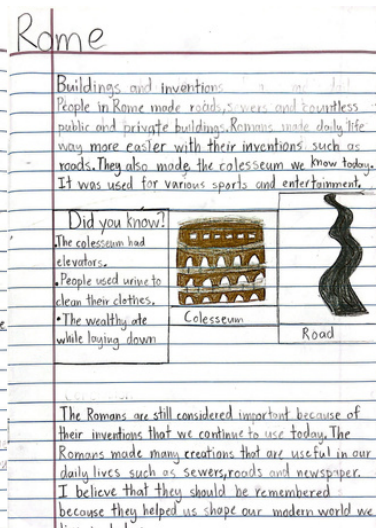 Rome
Buildings and inventions
People in Rome made roads, sewers and countless
public and private buildings. Romans made daily life
way more easier with their inventions such as
roads. They also made the colesseum we know today.
It was used for various sports and entertainment.
Did you know?
•The colesseum had
elevators.
•People used urine to
clean their clothes.
•The wealthy ate
while laying down
Colesseum
Road
The Romans are still considered important because of
their inventions that we continue to use today. The
Romans made many creations that are useful in our
daily lives such as sewers, roads and newspaper.
I believe that they should be remembered
because they helped us shape our modern world we